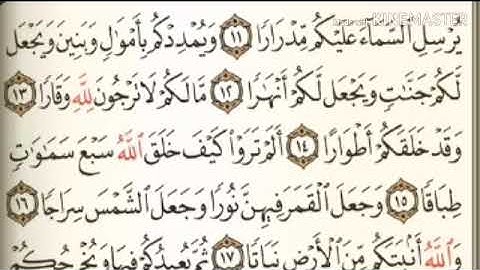 يُرْسِلِ ٱلسَّمَآءَ عَلَيْكُم مِّدْرَارًا ١١ وَيُمْدِدْكُم بِأَمْوَٰلٍ وَبَنِينَ وَيَجْعَل
لَّكُمْ جَنَّٰتٍ وَيَجْعَل لَّكُمْ أَنْهَٰرًا ١٢ مَّا لَكُمْ لَا تَرْجُونَ لِلَّهِ وَقَارًا ١٣
وَقَدْ خَلَقَكُمْ أَطْوَارًا ١٤ أَلَمْ تَرَوْا۟ كَيْفَ خَلَقَ ٱللَّهُ سَبْعَ سَمَٰوَٰتٍ
طِبَاقًا ١٥ وَجَعَلَ ٱلْقَمَرَ فِيهِنَّ نُورًا وَجَعَلَ ٱلشَّمْسَ سِرَاجًا ١٦
وَٱللَّهُ أَنۢبَتَكُم مِّنَ ٱلْأَرْضِ نَبَاتًا ١٧ ثُمَّ يُعِيدُكُمْ فِيهَا وَيُخْرِجُكُمْ
KINEMASTER